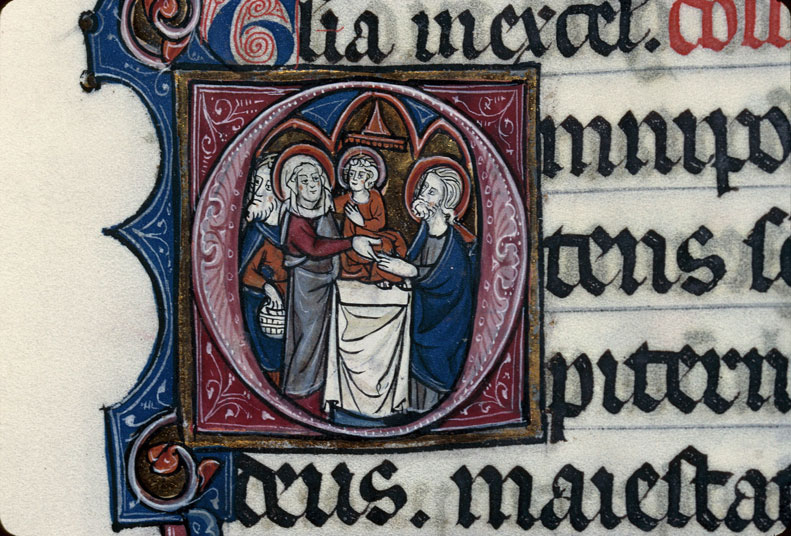 Glia in excel. coll
Omnipo
tens se
pitern
deus. maiesta